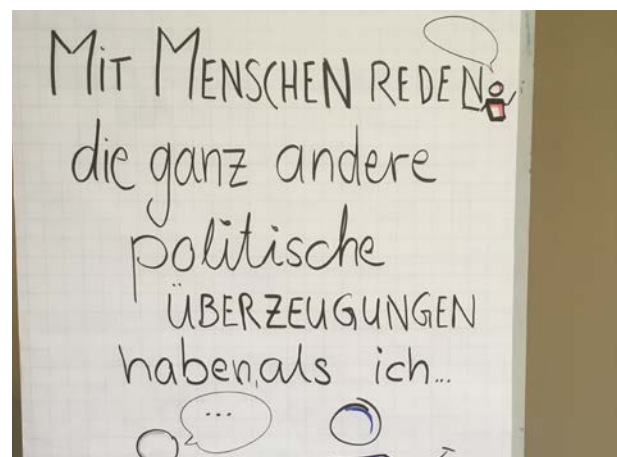 MIT MENSCHEN REDEN
die ganz andere
politische
ÜBERZEUGUNGEN
haben, als ich...
...